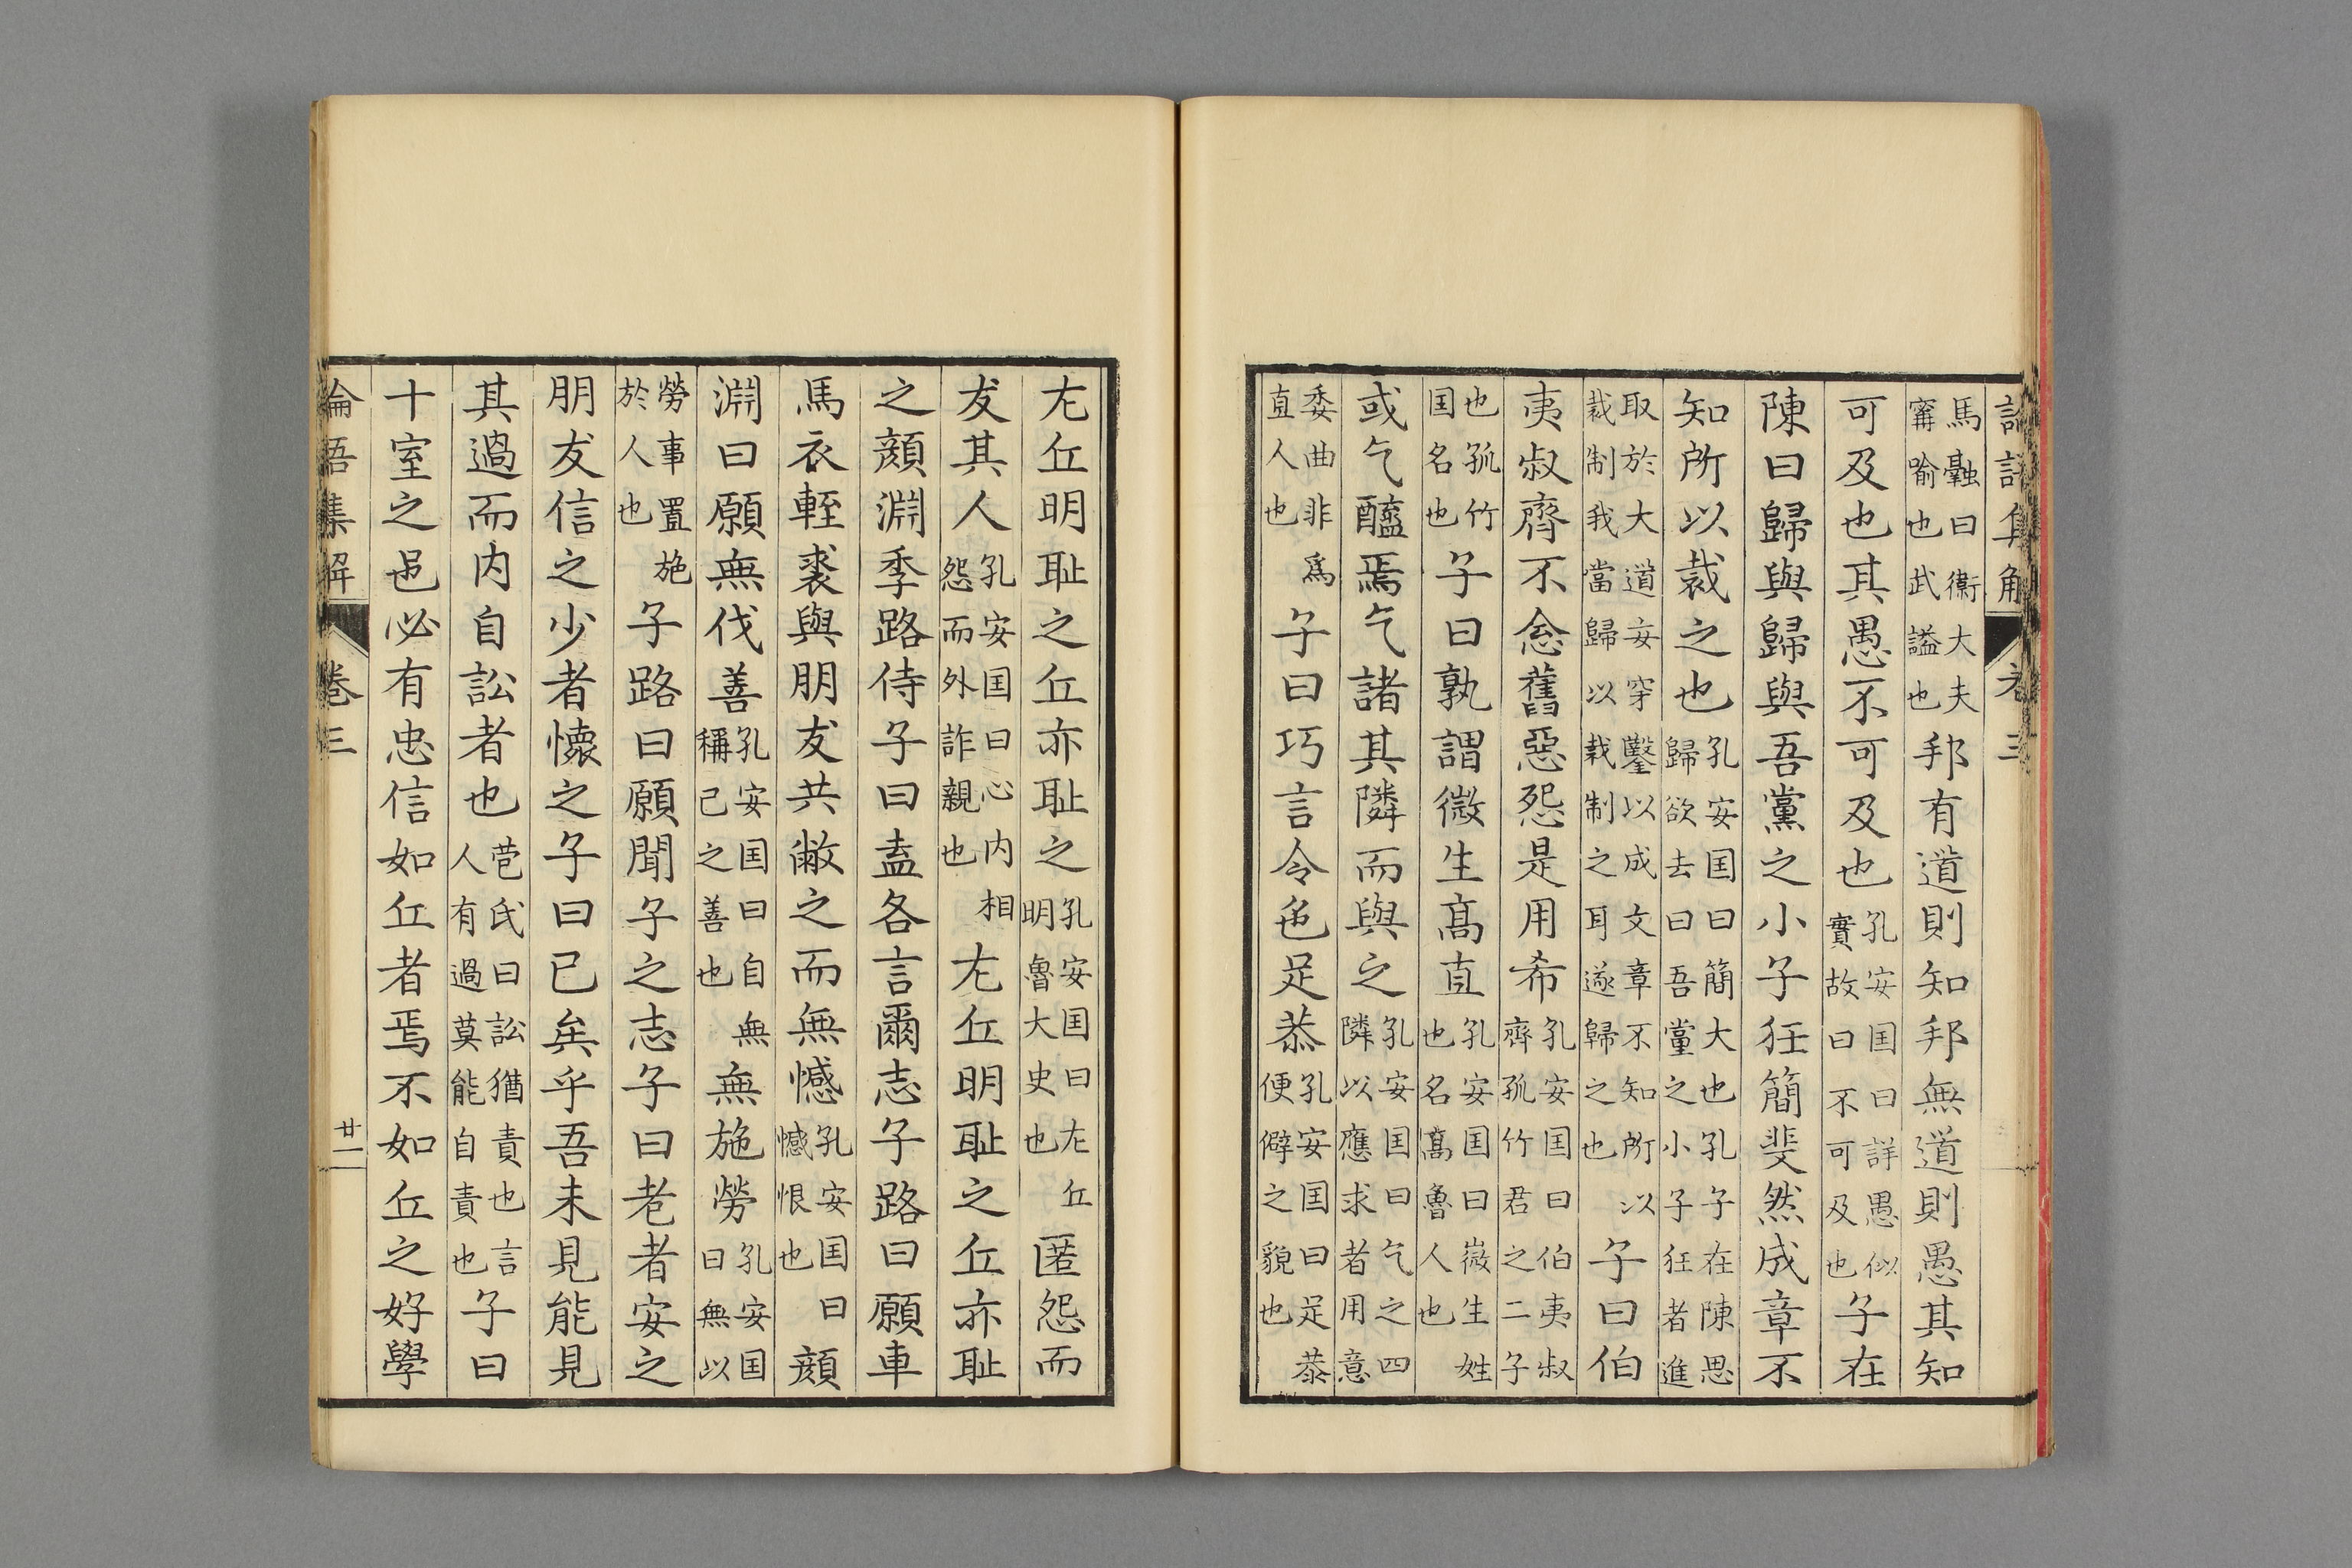 馬融曰衛大夫
寗喻也武謚也
邦有道則知邦無道則愚其知
可及也其愚不可及也
孔安囯曰詳愚似
實故曰不可及也
子在
陳曰歸與歸與吾黨之小子狂簡斐然成章不
知所以裁之也
孔安囯曰簡大也孔子在陳思
歸欲去曰吾黨之小子狂者進
取於大道妄穿鑿以成文章不知所以
裁制我當歸以裁制之耳遂歸之也
子曰伯
夷叔齊不念舊惡怨是用希
孔安囯曰伯夷叔
齊孤竹君之二子
也孤竹
囯名也
子曰孰謂微生髙直
孔安囯曰微生姓
也名髙魯人也
或乞醯焉乞諸其隣而與之
孔安囯曰乞之四
隣以應求者用意
委曲非爲
直人也
子曰巧言令色足恭
孔安囯曰足恭
便僻之貌也
左丘明耻之丘亦耻之
孔安囯曰左丘
明魯大史也
匿怨而
友其人
孔安囯曰心内相
怨而外詐親也
左丘明耻之丘亦耻
之顔淵季路侍子曰盍各言爾志子路曰願車
馬衣輕裘與朋友共敝之而無憾
孔安囯曰
憾恨也
顔
淵曰願無伐善
孔安囯曰自無
稱己之善也
無施勞
孔安囯
曰無以
勞事置施
於人也
子路曰願聞子之志子曰老者安之
朋友信之少者懷之子曰已矣乎吾未見能見
其過而内自訟者也
苞氏曰訟猶責也言
人有過莫能自責也
子曰
十室之邑必有忠信如丘者焉不如丘之好學
論語集解 卷三 廿一